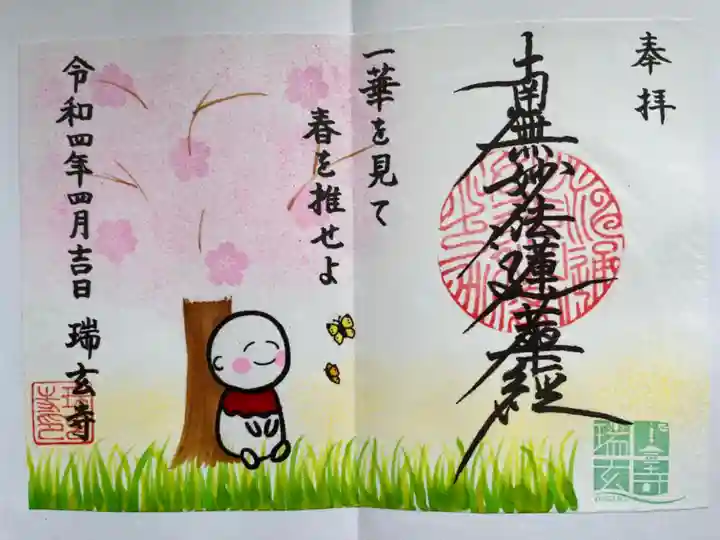 奉拝
南無妙法蓮華経
一華を見て
春を推せよ
令和四年四月吉日 瑞玄寺
瑞玄寺